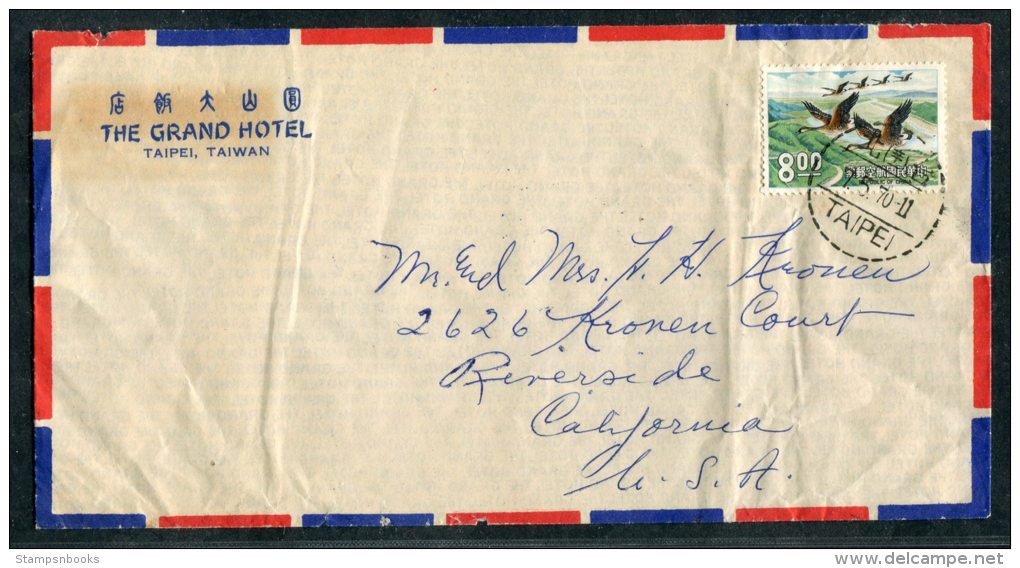 店飯大山圓
THE GRAND HOTEL
TAIPEI, TAIWAN
8.00
票郵空航國民華中
5. 70-11
TAIPEI
Mr. and Mrs. F. H. Kronen
2626 Kronen Court
Riverside
California
U. S. A.
Stampsnbooks
www.delcampe.net